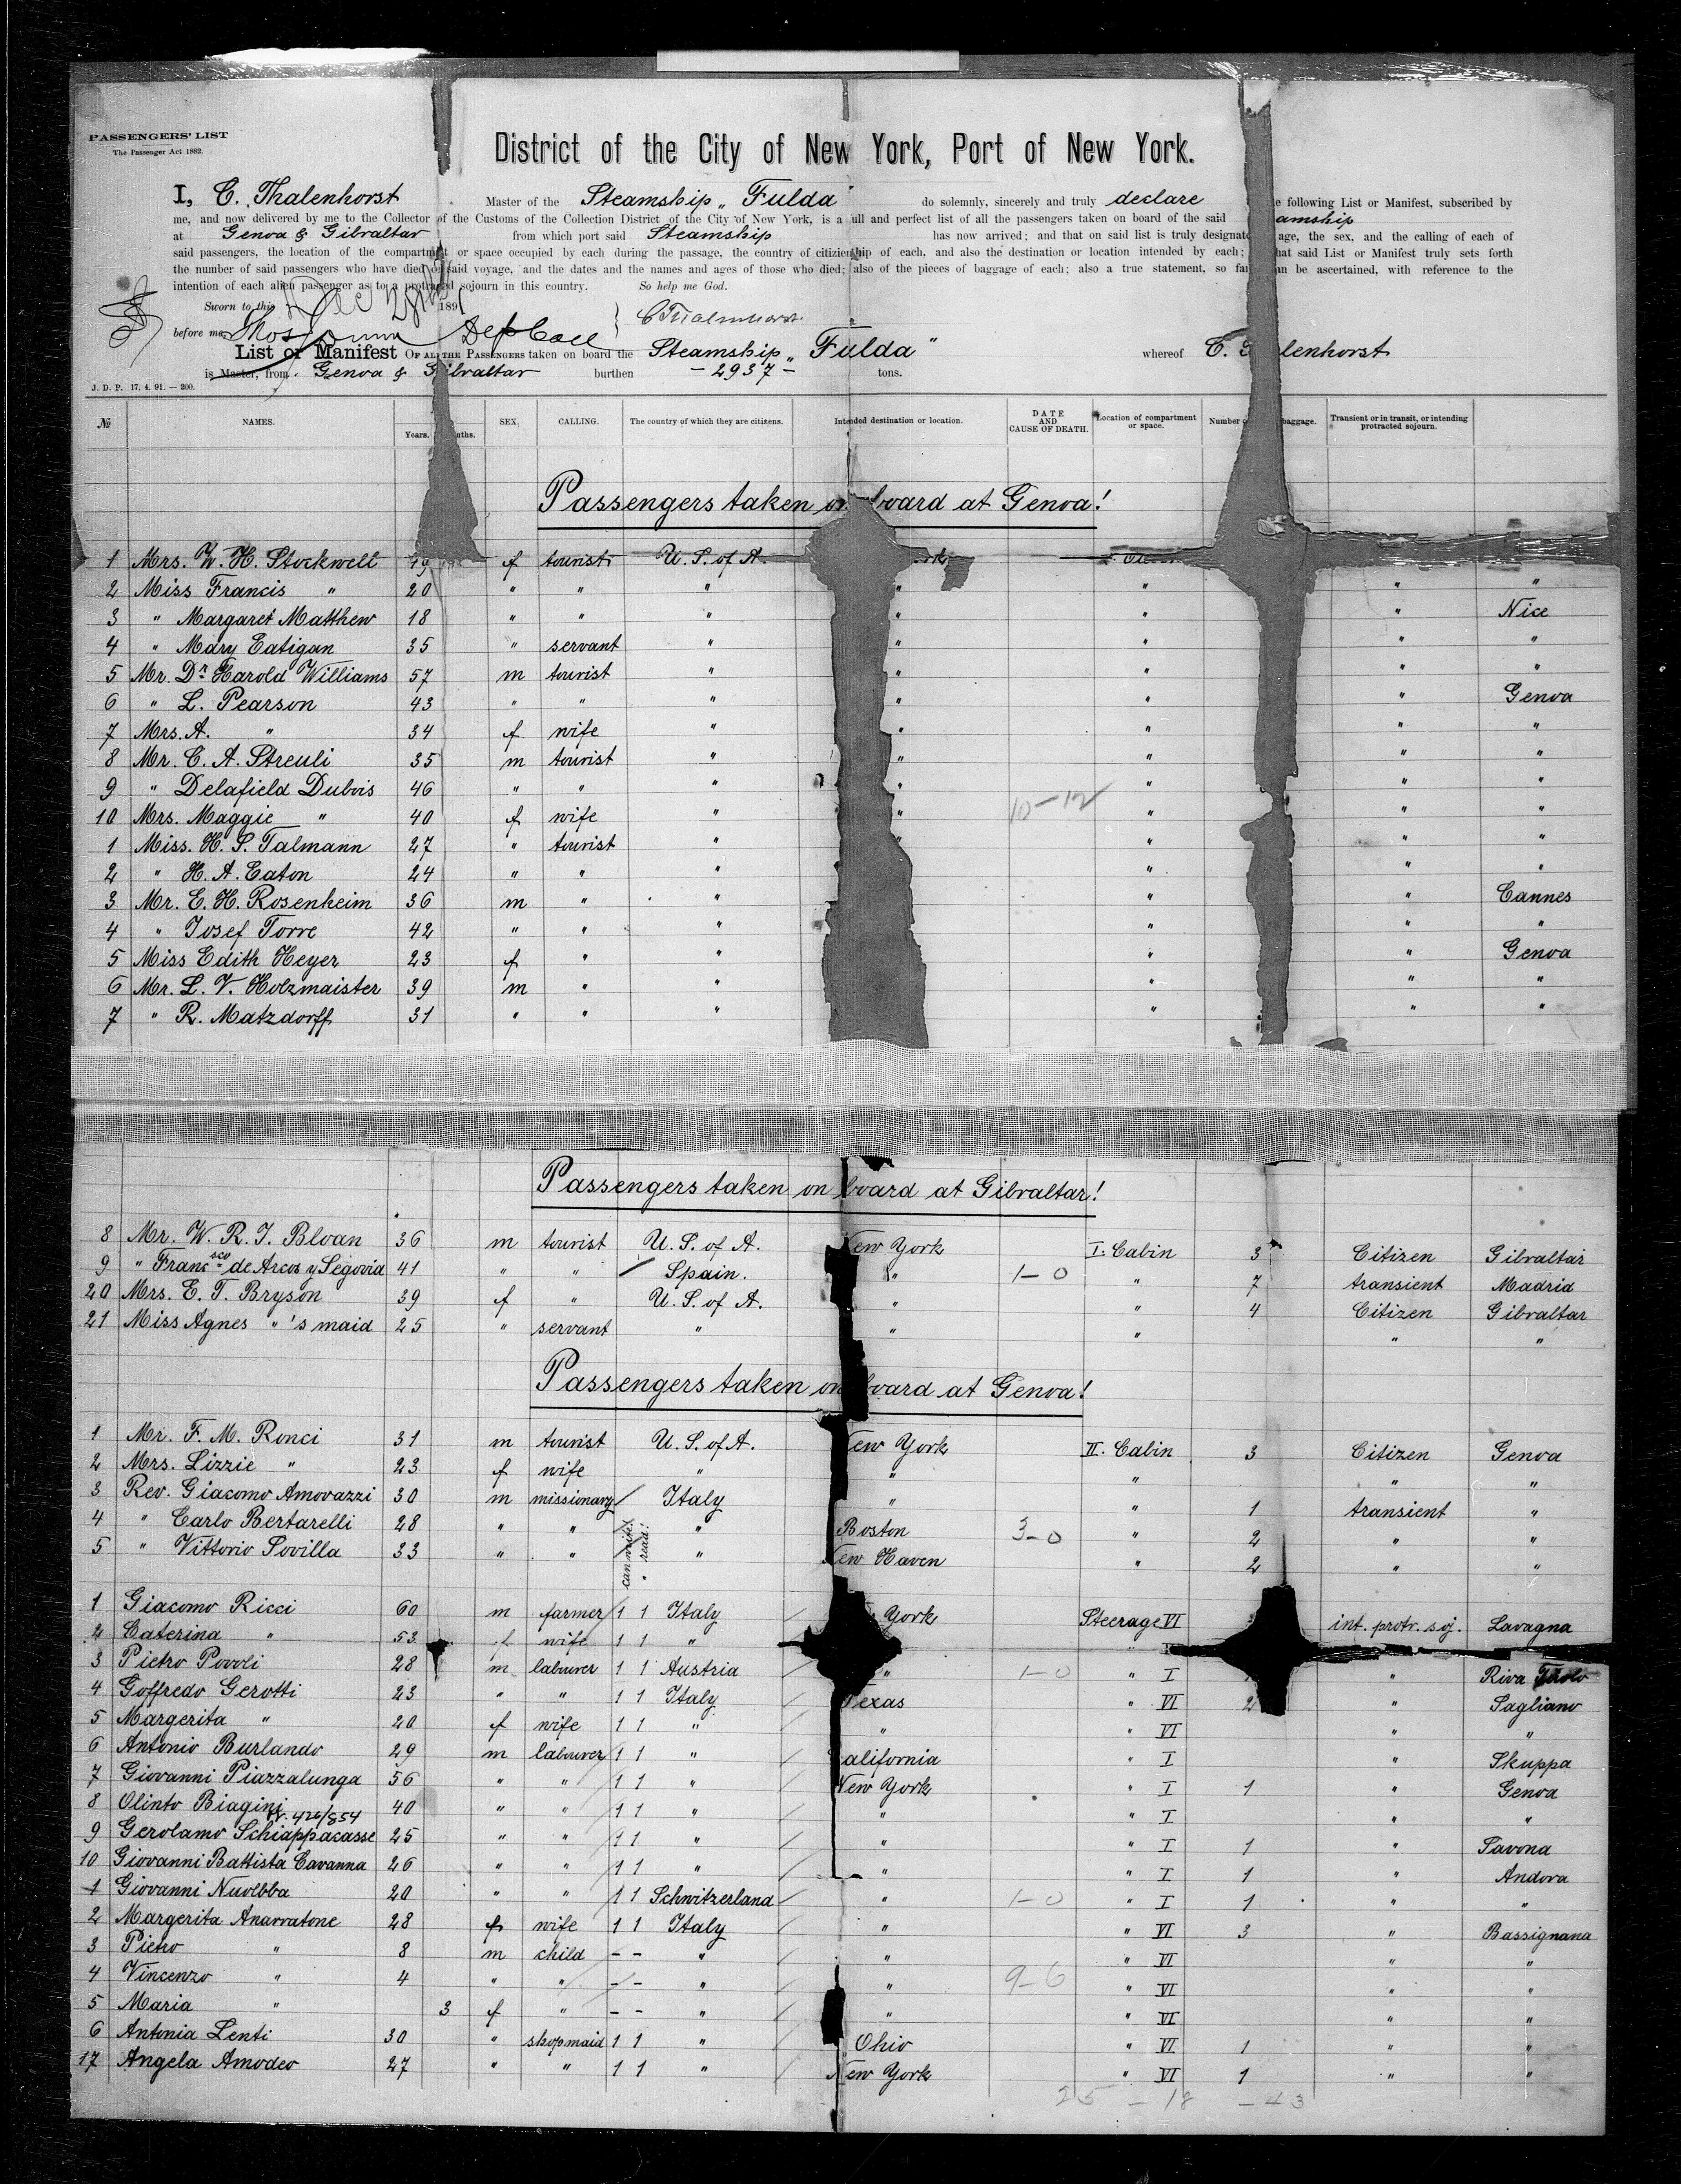 PASSENGERS' LIST
The Passenger Act 1882.
District of the City of New York, Port of New York.
I, C. Thalenhorst Master of the Steamship „Fulda" do solemnly, sincerely and truly declare e following List or Manifest, subscribed by
me, and now delivered by me to the Collector of the Customs of the Collection District of the City of New York, is a ull and perfect list of all the passengers taken on board of the said amship
at Genoa & Gibraltar from which port said Steamship has now arrived; and that on said list is truly designate age, the sex, and the calling of each of
said passengers, the location of the compartment or space occupied by each during the passage, the country of citizenship of each, and also the destination or location intended by each; hat said List or Manifest truly sets forth
the number of said passengers who have died on said voyage, and the dates and the names and ages of those who died; also of the pieces of baggage of each; also a true statement, so far an be ascertained, with reference to the
intention of each alien passenger as to a protracted sojourn in this country. So help me God.
Sworn to this Dec 28th 1891
before me
List or Manifest OF ALL THE PASSENGERS taken on board the Steamship „Fulda" whereof C. Thalenhorst
is Master, from Genoa & Gibraltar burthen – 2937 – tons.
J. D. P. 17. 4. 91. — 200.
№ NAMES. Years. nths. SEX. CALLING. The country of which they are citizens. Intended destination or location. DATE AND CAUSE OF DEATH. Location of compartment or space. Number baggage. Transient or in transit, or intending protracted sojourn.
Passengers taken on board at Genoa!
1 Mrs. W. H. Stockwell 49 f tourist U. S. of A.
2 Miss Francis " 20 " " " " " " "
3 " Margaret Matthew 18 " " " " " " Nice
4 " Mary Eatigan 35 " servant " " " " "
5 Mr. Dr Harold Williams 57 m tourist " " " " "
6 " L. Pearson 43 " " " " " " Genoa
7 Mrs. A. " 34 f wife " " " " "
8 Mr. C. A. Streuli 35 m tourist " " " " "
9 " Delafield Dubois 46 " " " " " " "
10 Mrs. Maggie " 40 f wife " " 10–12 " " "
1 Miss. H. S. Talmann 27 " tourist " " " " "
2 " H. A. Eaton 24 " " " " " "
3 Mr. E. H. Rosenheim 36 m " " " " Cannes
4 " Josef Torre 42 " " " " " "
5 Miss Edith Heyer 23 f " " " " Genoa
6 Mr. L. V. Holzmaister 39 m " " " " "
7 " R. Matzdorff 31 " " " " " "
Passengers taken on board at Gibraltar!
8 Mr. W. R. J. Bloan 36 m tourist U. S. of A. New York I. Cabin 3 Citizen Gibraltar
9 " Francsco de Arcos y Segovia 41 " " Spain. " 1–0 " 7 transient Madrid
20 Mrs. E. T. Bryson 39 f " U. S. of A. " " 4 Citizen Gibraltar
21 Miss Agnes " 's maid 25 " servant " " " " "
Passengers taken on board at Genoa!
1 Mr. F. M. Ronci 31 m tourist U. S. of A. New York II. Cabin 3 Citizen Genoa
2 Mrs. Lizzie " 23 f wife " " " " "
3 Rev. Giacomo Amovazzi 30 m missionary Italy " " 1 transient "
4 " Carlo Bertarelli 28 " " " Boston 3–0 " 2 " "
5 " Vittorio Sovilla 33 " " " New Haven " 2 " "
can write!
" read!
1 Giacomo Ricci 60 m farmer 1 1 Italy York Steerage VI int. protr. soj. Lavagna
2 Caterina " 53 f wife 1 1 "
3 Pietro Povoli 28 m labourer 1 1 Austria " 1–0 " I " Riva
4 Goffredo Gerotti 23 " " 1 1 Italy Texas " VI 2 " Sagliano
5 Margerita " 20 f wife 1 1 " " " VI " "
6 Antonio Burlando 29 m labourer 1 1 " alifornia " I " Skuppa
7 Giovanni Piazzalunga 56 " " 1 1 " New York " I 1 " Genoa
8 Olinto Biagini 40 " " 1 1 " " " I " "
426/854
9 Gerolamo Schiappacasse 25 " " 1 1 " " " I 1 " Savona
10 Giovanni Battista Cavanna 26 " " 1 1 " " " I 1 " Andora
1 Giovanni Nuolbba 20 " " 1 1 Schwitzerland " 1–0 " I 1 " "
2 Margerita Anarratone 28 f wife 1 1 Italy " " VI 3 " Bassignana
3 Pietro " 8 m child – – " " " VI " "
4 Vincenzo " 4 " " – – " " 9–6 " VI " "
5 Maria " 3 f " – – " " " VI " "
6 Antonia Lenti 30 " shopmaid 1 1 " Ohio " VI 1 " "
17 Angela Amodeo 27 " " 1 1 " New York " VI 1 " "
25 – 18 – 43